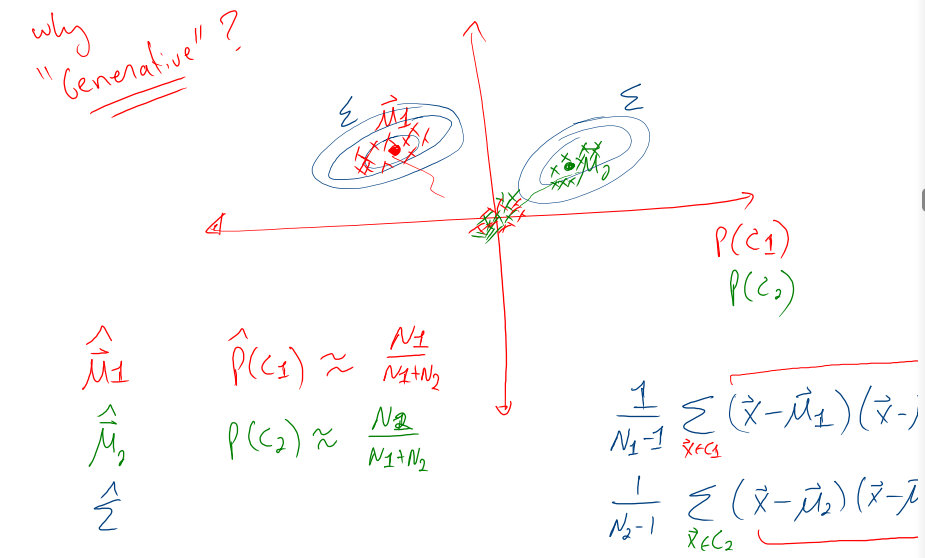 why
"Generative" ?
Σ μ⃗1 Σ
μ⃗2
P(C1)
P(C2)
μ⃗̂1 P̂(C1) ≈ N1/(N1+N2)
μ⃗̂2 P(C2) ≈ N2/(N1+N2)
Σ̂
1/(N1-1) Σ x⃗∈C1 (x⃗-μ⃗1)(x⃗-
1/(N2-1) Σ x⃗∈C2 (x⃗-μ⃗2)(x⃗-μ